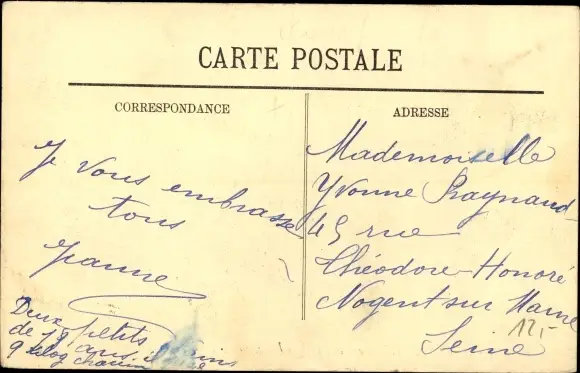 CARTE POSTALE
CORRESPONDANCE
ADRESSE
Je vous embrasse
tous
Jeanne
Deux petits
de 19 ans
9 kilog chacun
Mademoiselle
Yvonne Raynaud
45 rue
Théodore-Honoré
Nogent sur Marne
Seine
12,-